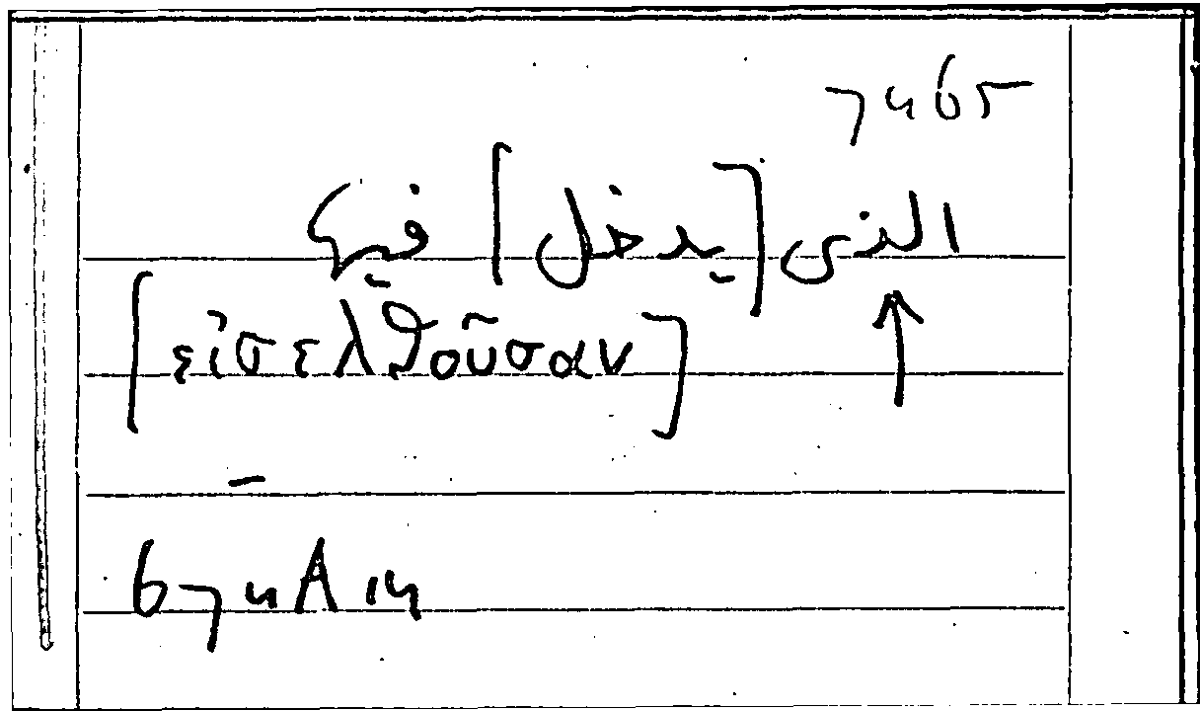 7465
الذى [يدخل] فيها
[εἰσελθοῦσαν]
674A14